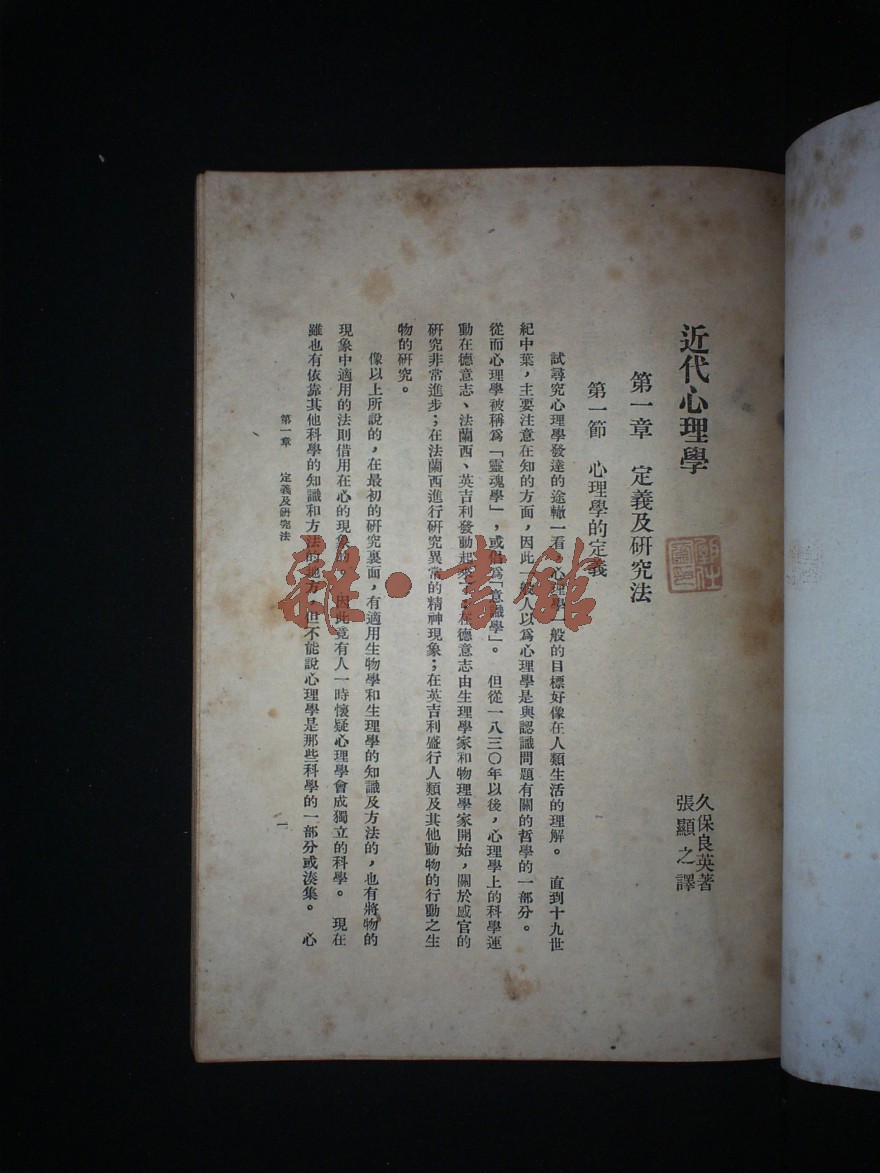 近代心理學
久保良英著
張顯之譯
第一章　定義及研究法
第一節　心理學的定義
試尋究心理學發達的途轍一看，心理學一般的目標好像在人類生活的理解。　直到十九世
紀中葉，主要注意在知的方面，因此一般人以爲心理學是與認識問題有關的哲學的一部分。
從而心理學被稱爲「靈魂學」，或倡爲「意識學」。　但從一八三〇年以後，心理學上的科學運
動在德意志、法蘭西、英吉利發動起來；在德意志由生理學家和物理學家開始，關於感官的
研究非常進步；在法蘭西進行研究異常的精神現象；在英吉利盛行人類及其他動物的行動之生
物的研究。
像以上所說的，在最初的研究裏面，有適用生物學和生理學的知識及方法的，也有將物的
現象中適用的法則借用在心的現象的。　因此竟有人一時懷疑心理學會成獨立的科學。　現在
雖也有依靠其他科學的知識和方法的地方，但不能說心理學是那些科學的一部分或湊集。　心
第一章　定義及研究法
一
雜·書館